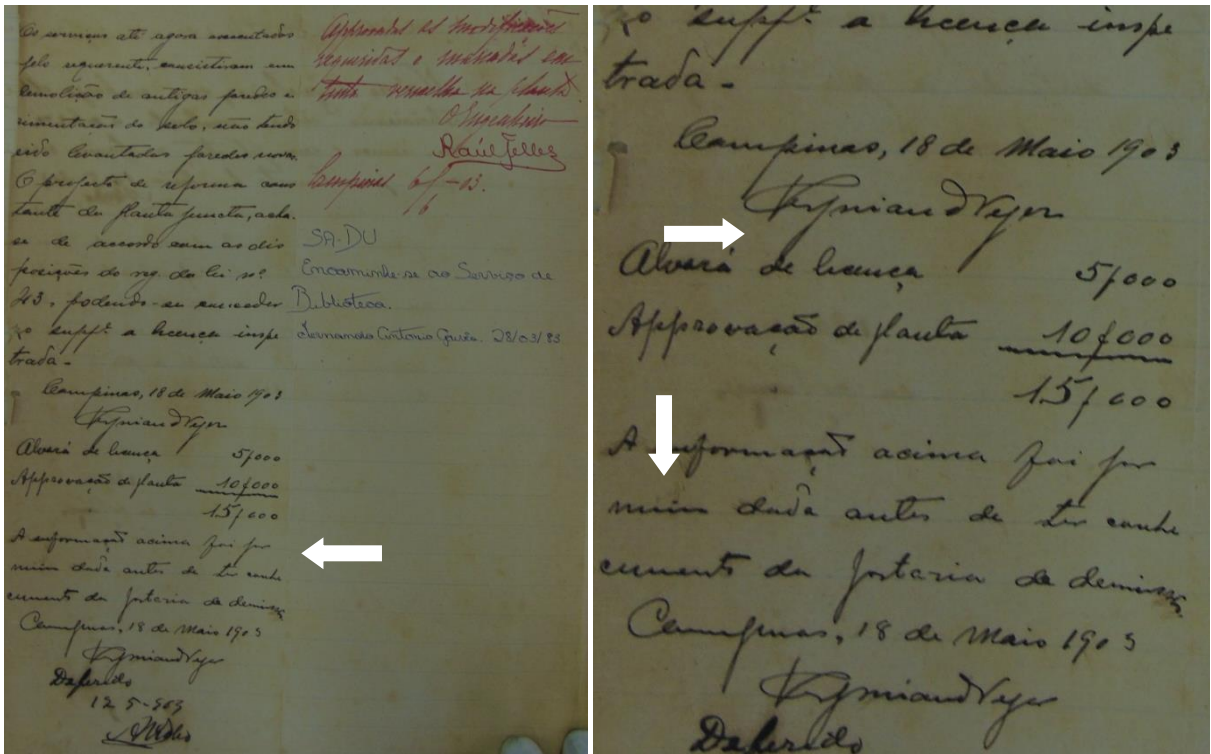 Os serviços até agora executados
pelo requerente, consistiram em
demolição de antigas paredes e
cimentação do solo, não tendo
sido levantadas paredes novas.
O projecto de reforma cons
tante da planta juncta, acha-
se de accordo com as dis
posições do reg. da lei nº
43, podendo-se conceder
ao suppte a licença impe
trada.
Campinas, 18 de Maio 1903
Alvará de licença 5$000
Approvação de planta 10$000
15$000
A informação acima foi por
mim dada antes de ter conhe
cimento da portaria de demissão
Campinas, 18 de Maio 1903
Deferido
12-5-903
Approvadas as modificações
requeridas e marcadas em
tinta vermelha na planta.
O Engenheiro
Raúl Telles
Campinas 6/6-03.
SA-DU
Encaminhe-se ao Serviço de
Biblioteca.
Fernando Antonio 28/03/83
ao suppte a licença impe
trada.
Campinas, 18 de Maio 1903
Alvará de licença 5$000
Approvação de planta 10$000
15$000
A informação acima foi por
mim dada antes de ter conhe
cimento da portaria de demissão
Campinas, 18 de Maio 1903
Deferido